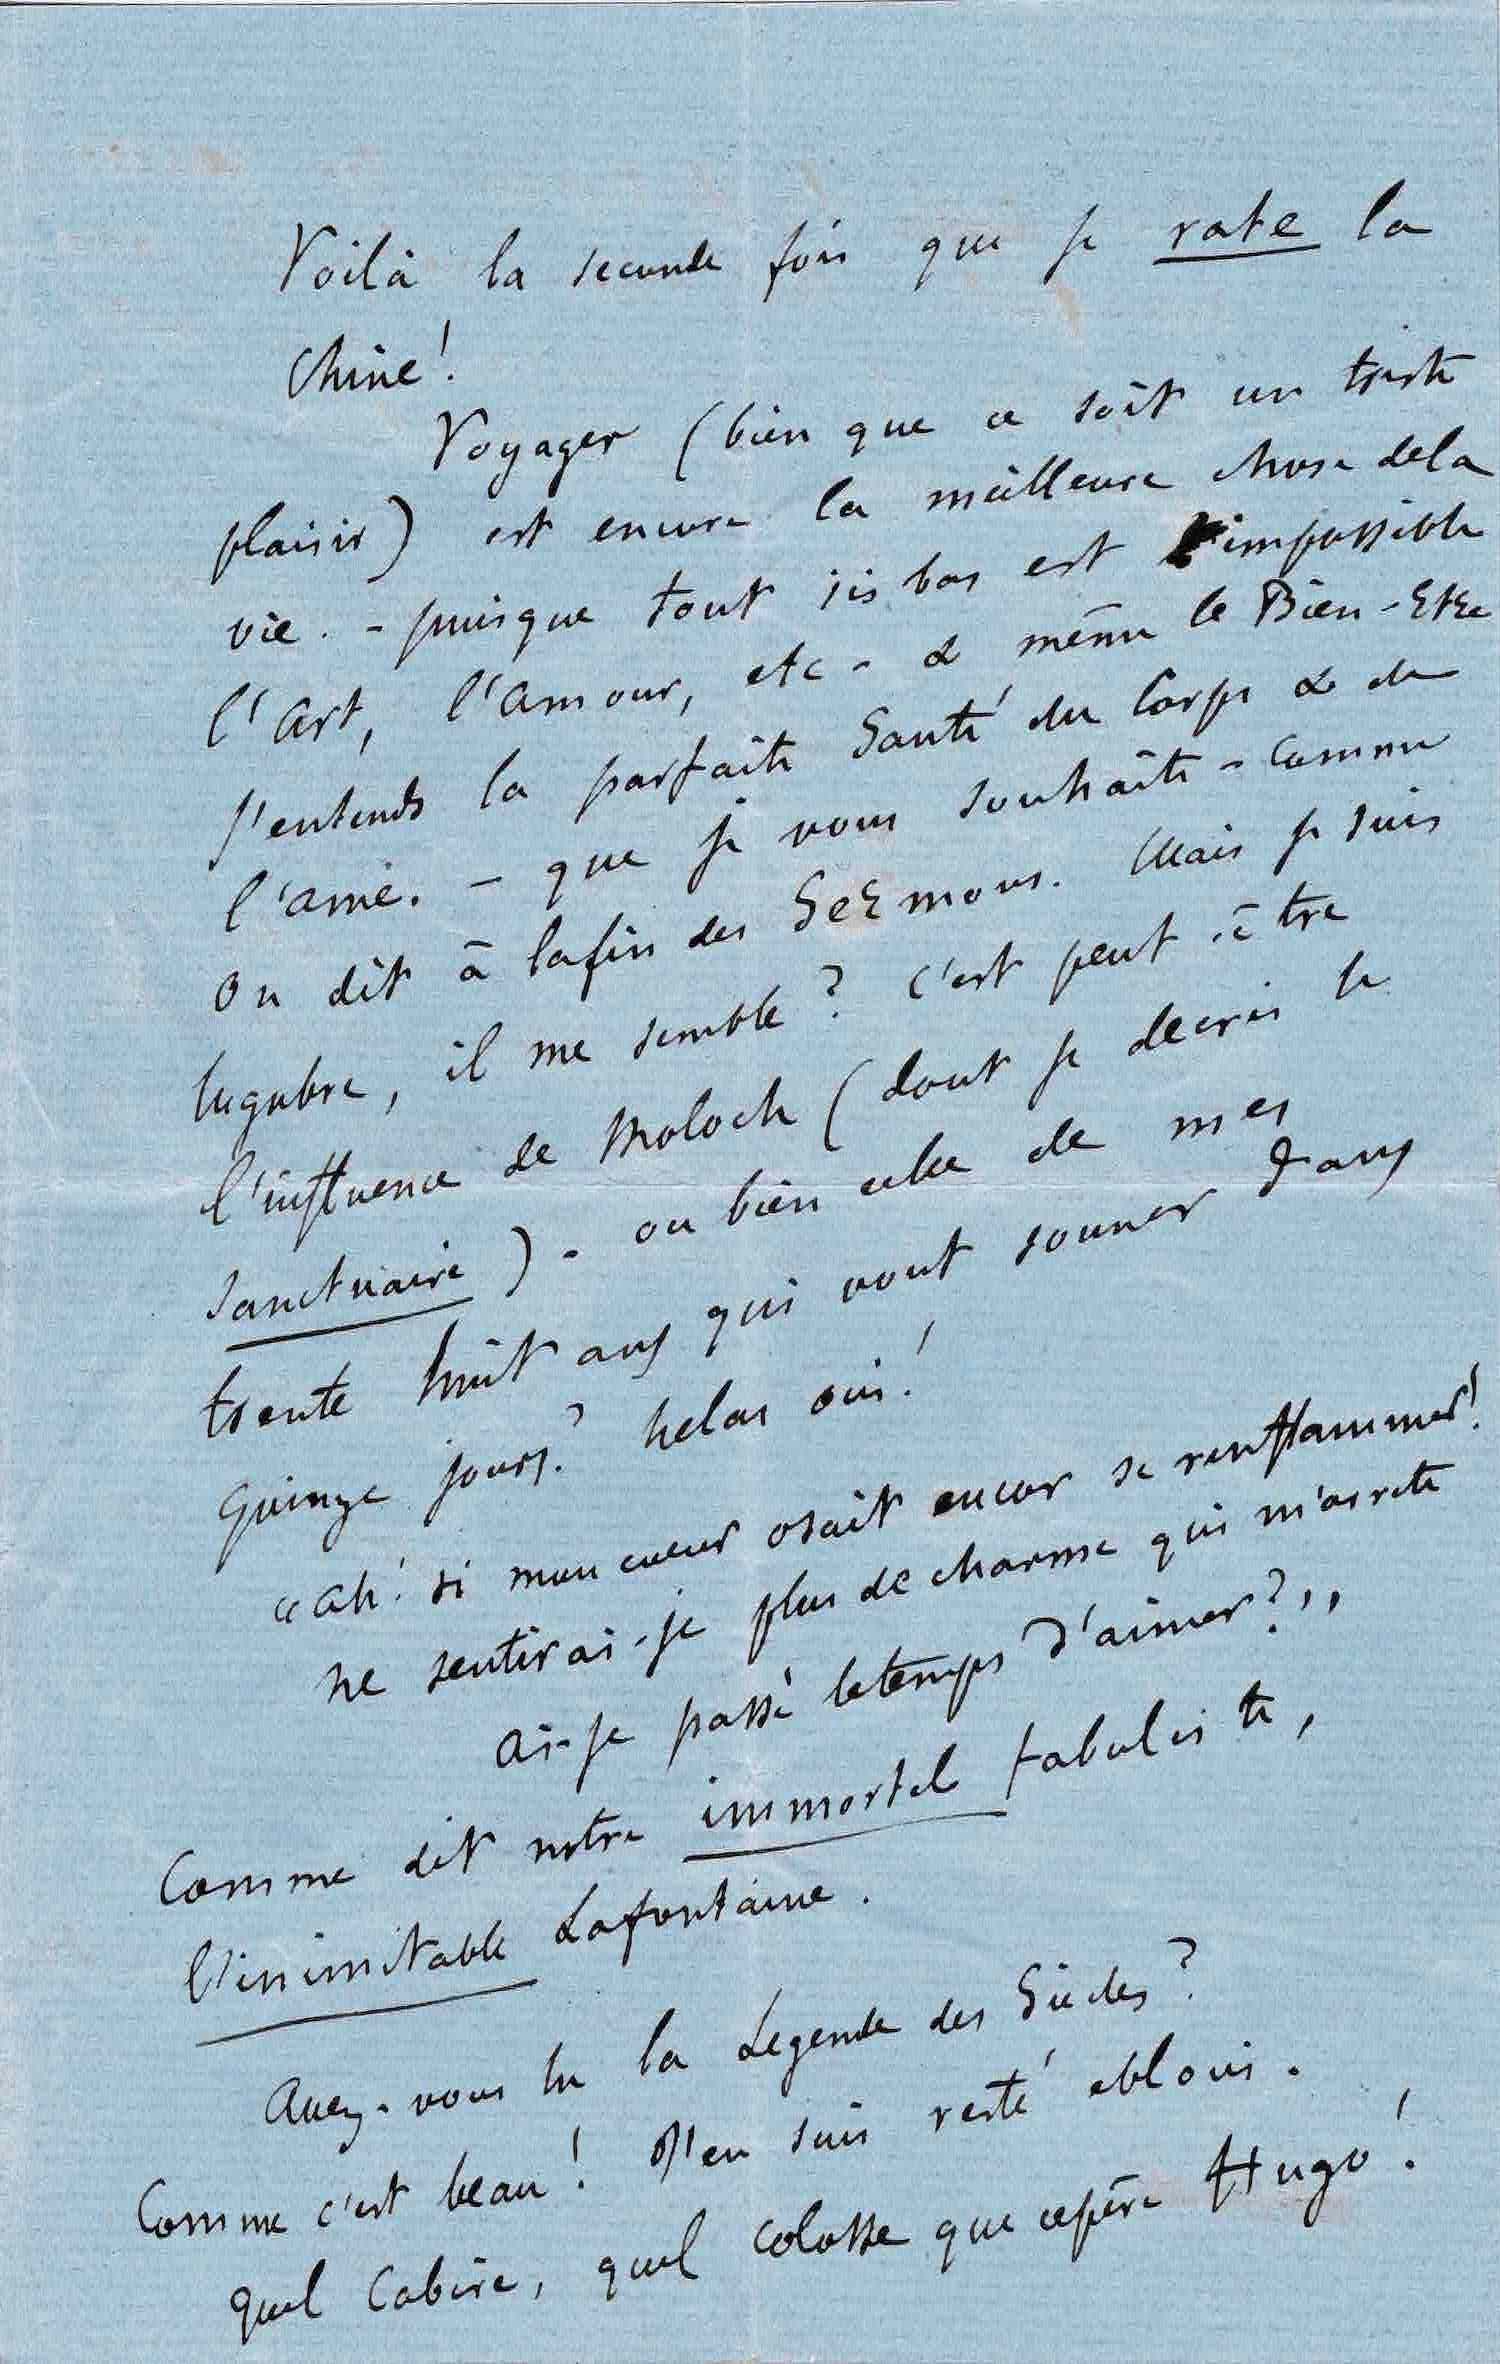 Voilà la seconde fois que je rate la
Chine!
Voyager (bien que ce soit un triste
plaisir) est encore la meilleure chose dela
vie. - puisque tout ici bas est impossible
l'art, l'amour, etc - & même le Bien-Etre
j'entends la parfaite Santé du Corps & de
l'ame. - que je vous souhaite - comme
on dit à lafin des Sermons. Mais je suis
lugubre, il me semble? C'est peut-être
l'influence de Moloch (dont je decris le
sanctuaire) - ou bien celle de mes
trente huit ans qui vont sonner dans
quinze jours? helas oui!
"ah! si mon coeur osait encor se renflammer!
ne sentirai-je plus de charme qui m'arrete
ai-je passé letemps d'aimer?"
Comme dit notre immortel fabuliste,
l'inimitable Lafontaine.
Avez-vous lu la Legende des Siècles?
Comme c'est beau! J'en suis resté ebloui.
quel Cabire, quel colosse que cepère Hugo!